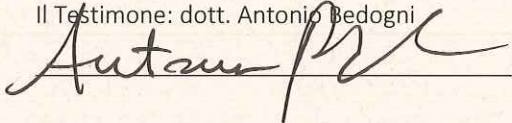 Il Testimone: dott. Antonio Bedogni
Antonio